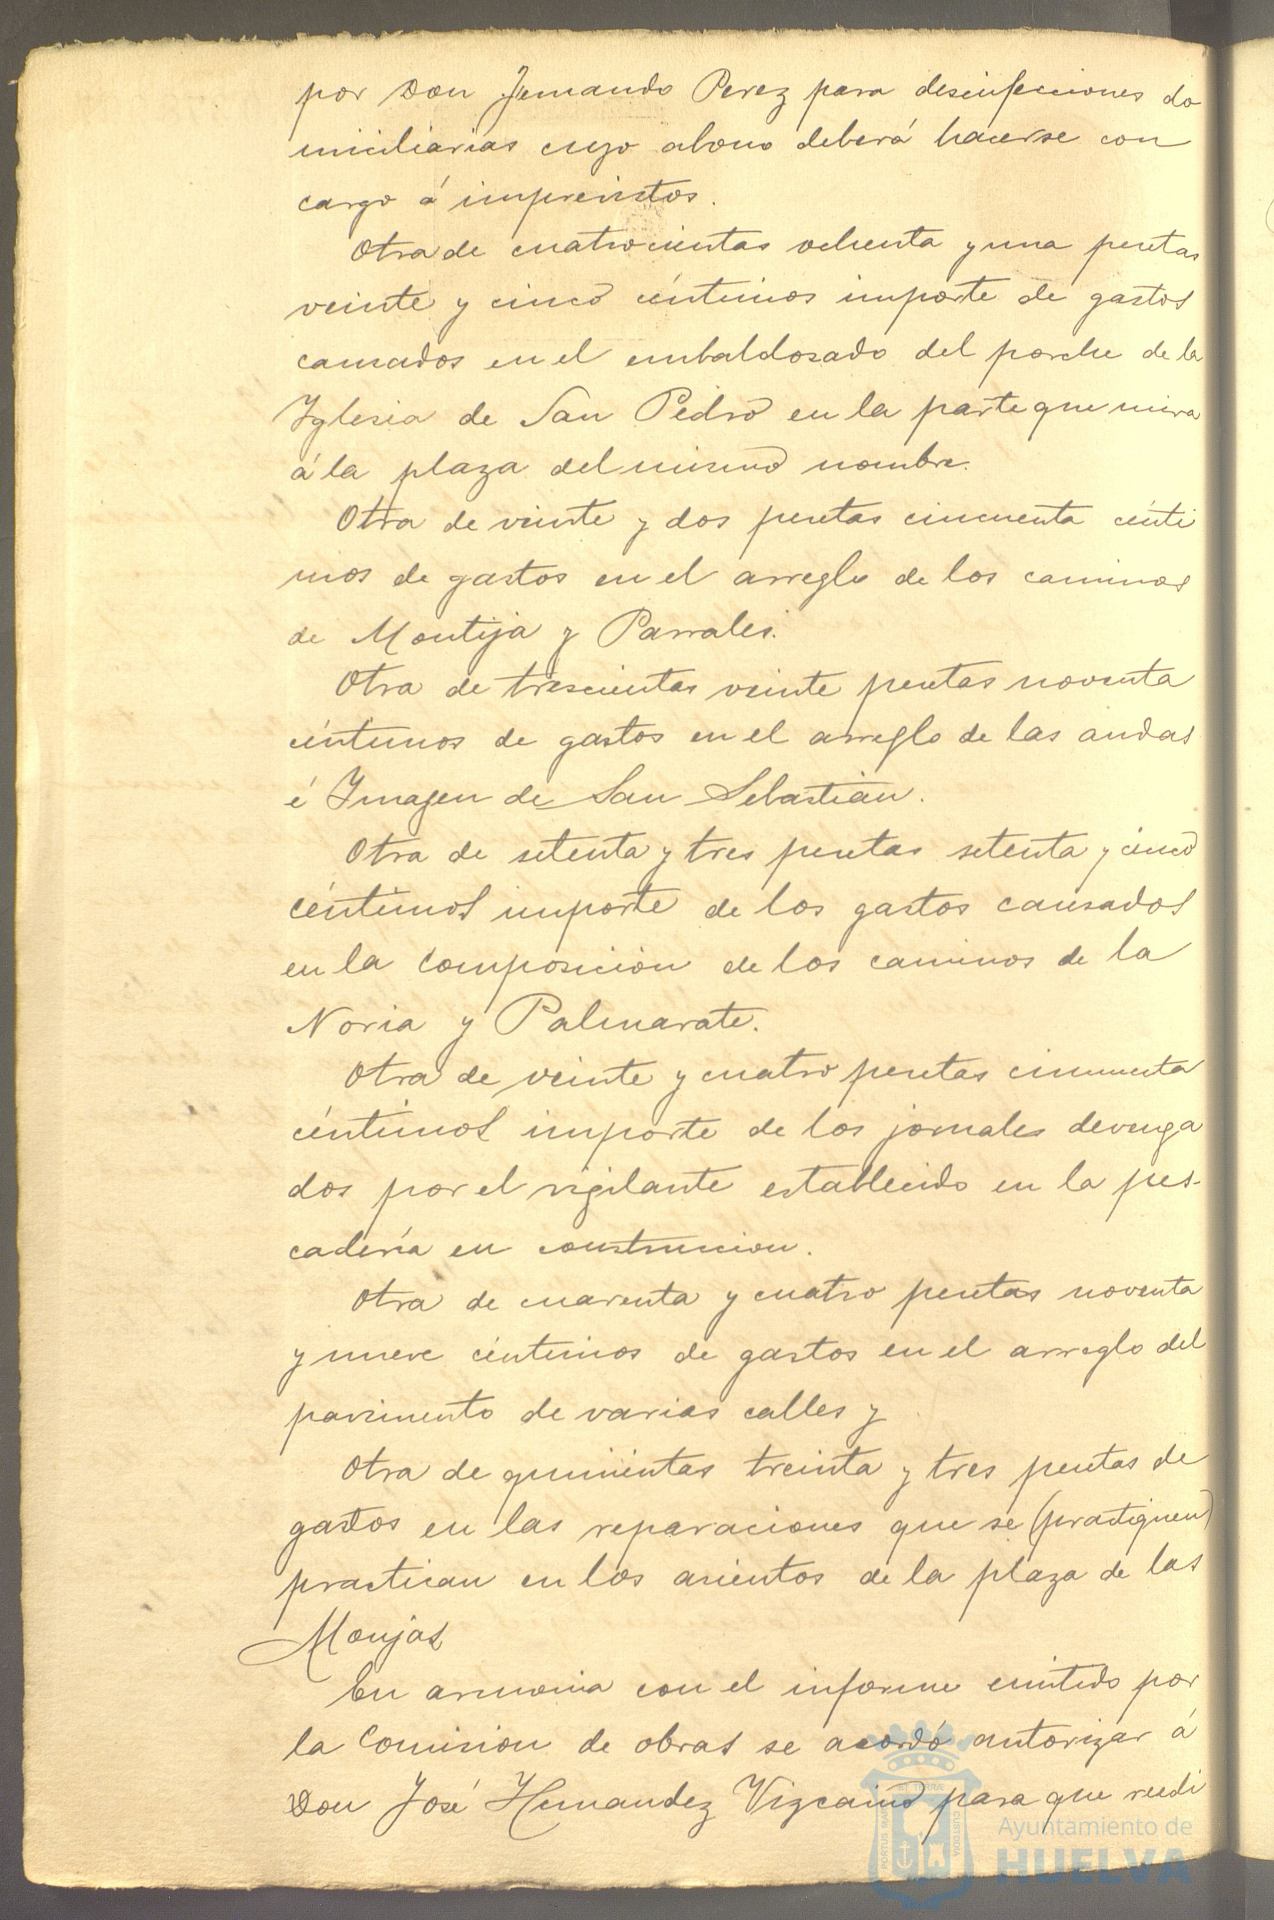 por Don Fernando Perez para desinfecciones do
miciliarias cuyo abono deberá hacerse con
cargo á imprevistos.
Otra de cuatrocientas ochenta y una pesetas
veinte y cinco céntimos importe de gastos
causados en el embaldosado del porche de la
Yglesia de San Pedro en la parte que mira
á la plaza del mismo nombre.
Otra de veinte y dos pesetas cincuenta cénti
mos de gastos en el arreglo de los caminos
de Montija y Parrales.
Otra de trescientas veinte pesetas noventa
céntimos de gastos en el arreglo de las andas
é Ymagen de San Sebastián.
Otra de setenta y tres pesetas setenta y cinco
céntimos importe de los gastos causados
en la composicion de los caminos de la
Noria y Palmarate.
Otra de veinte y cuatro pesetas cincuenta
céntimos importe de los jornales devenga
dos por el vigilante establecido en la pes-
cadería en construccion.
Otra de cuarenta y cuatro pesetas noventa
y nueve céntimos de gastos en el arreglo del
pavimento de varias calles y
Otra de quinientas treinta y tres pesetas de
gastos en las reparaciones que se (practiquen)
practican en los asientos de la plaza de las
Monjas
En armonia con el informe emitido por
la Comision de obras se acordó autorizar á
Don José Hernandez Vizcaino para que reedi
PORTUS MARIS ET TERRÆ CUSTODIA
Ayuntamiento de
HUELVA